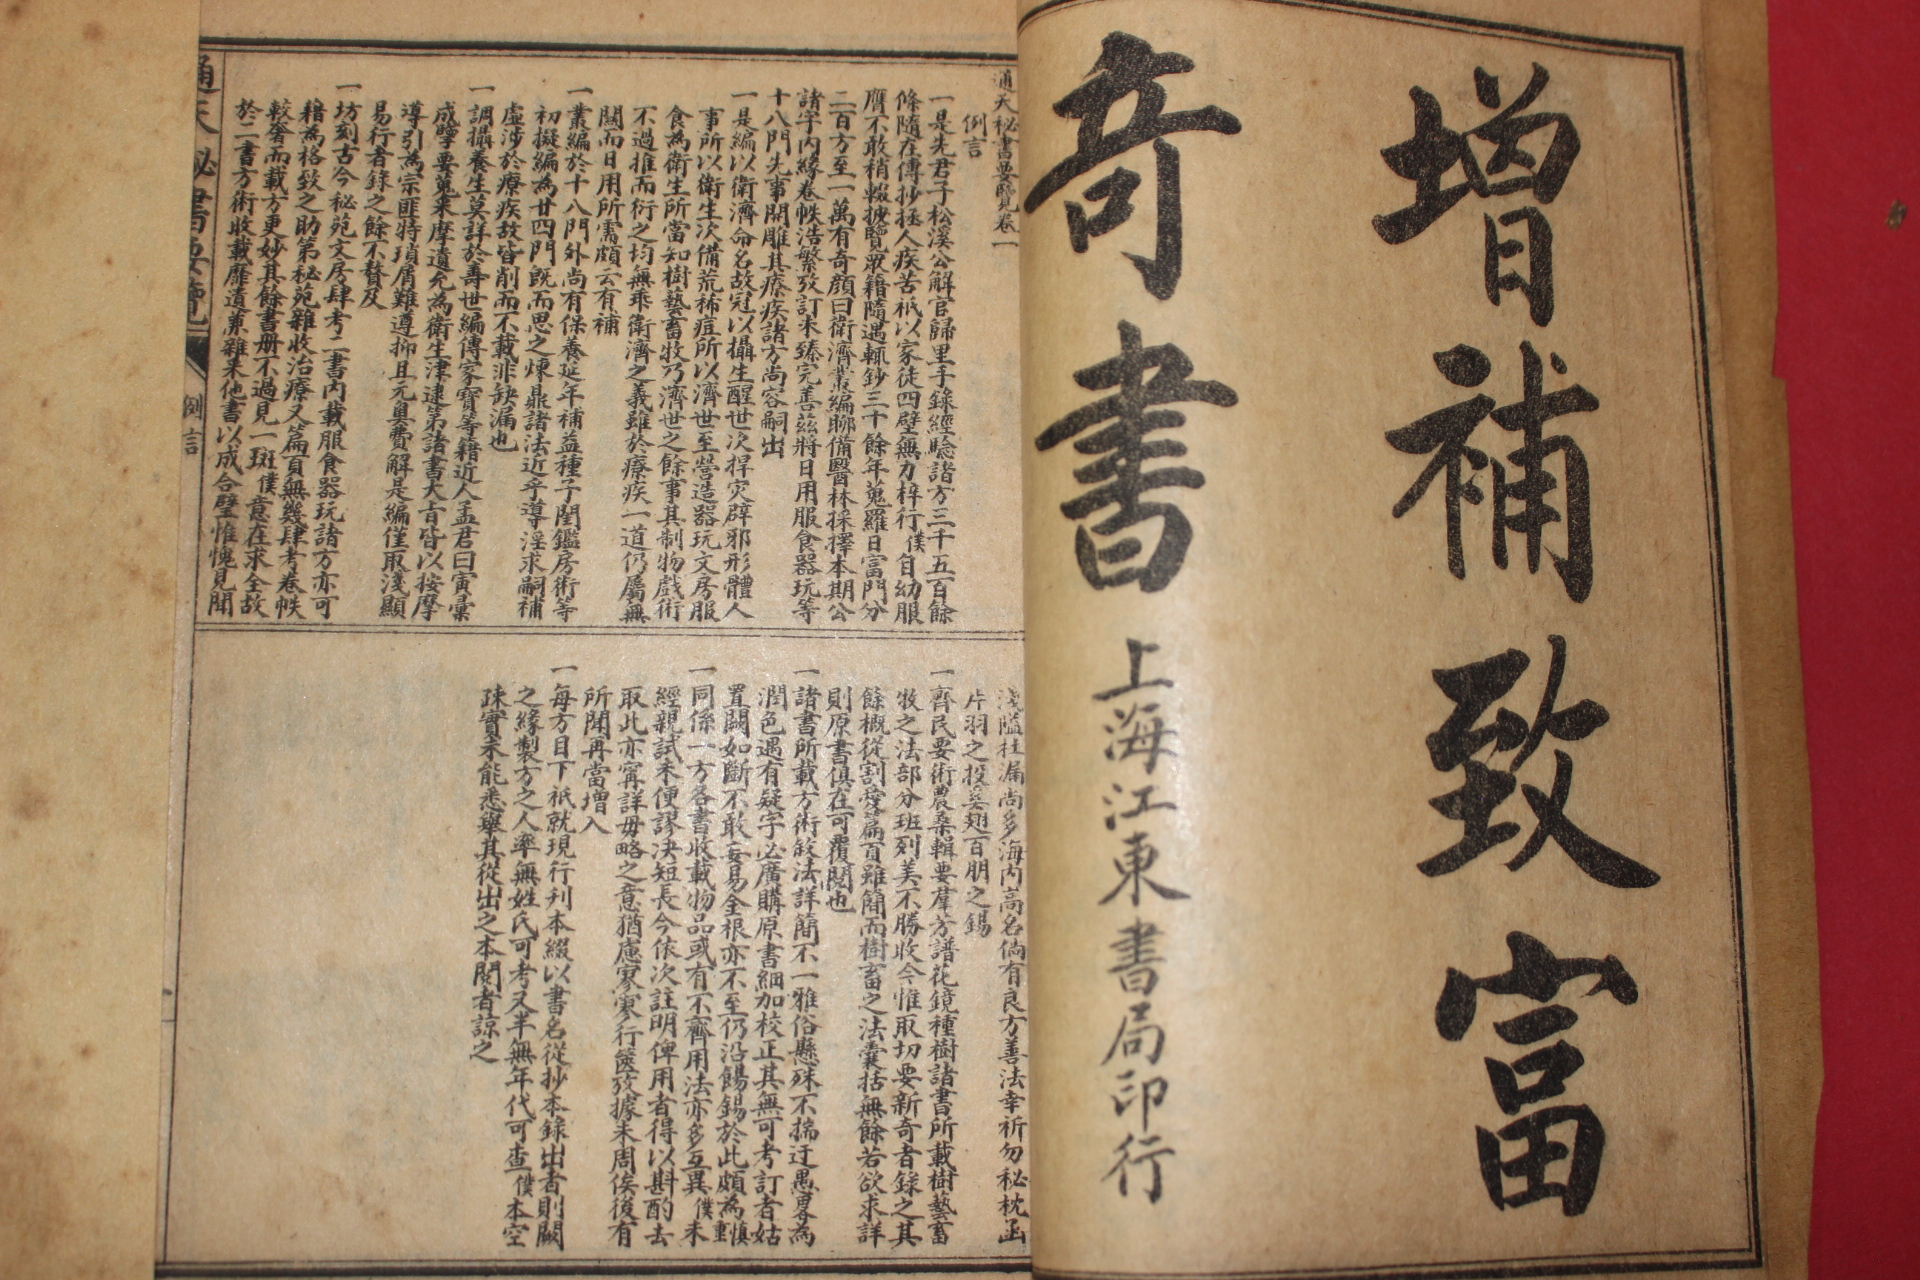 增補致富
奇書
上海江東書局印行
通天秘書要覽卷一
例言
一是先君子松溪公解官歸里手錄經驗諸方三千五百餘
條隨在傳抄拯人疾苦祇以家徒四壁無力梓行僕自幼服
膺不敢稍輟披覽眾籍隨遇輒鈔三十餘年蒐羅日富門分
二百方至一萬有奇顏曰衛濟叢編聊備醫林採擇本期公
諸宇內緣卷帙浩繁攷訂未臻完善茲將日用服食器玩等
十八門先事開雕其療疾諸方尚容嗣出
一是編以衛濟命名故冠以攝生醒世次捍灾辟邪形體人
事所以衛生次備荒稀痘所以濟世至營造器玩文房服
食為衛生所當知樹藝畜牧乃濟世之餘事其制物戲術
不過推而衍之均無乖衛濟之義雖於療疾一道仍屬無
關而日用所需頗云有補
一叢編於十八門外尚有保養延年補益種子閨鑑房術等
初擬編為廿四門旣而思之煉鼎諸法近乎導淫求嗣補
虛涉於療疾故皆削而不載非缺漏也
一調攝養生莫詳於壽世編傳家寶等籍近人孟君曰寅彙
成學要蒐釆摩遺允為衛生津逮第諸書大旨皆以按摩
導引為宗匪特瑣屑難遵抑且元奧費解是編僅取淺顯
易行者錄之餘不贅及
一坊刻古今秘苑文房肆考二書內載服食器玩諸方亦可
藉為格致之助第秘苑雜收治療又篇頁無幾肆考卷帙
較奢而載方更妙其餘書册不過見一斑僕意在求全故
於二書方術收載靡遺兼雜釆他書以成合璧惟愧見聞
淺隘挂漏尚多海內高名倘有良方善法幸祈勿秘枕函
片羽之投奚翅百朋之錫
一齊民要術農桑輯要羣芳譜花鏡種樹諸書所載樹藝畜
牧之法部分班列美不勝收今惟取切要新奇者錄之其
餘概從割愛篇頁雖簡而樹畜之法囊括無餘若欲求詳
則原書俱在可覆閱也
一諸書所載方術敘法詳簡不一雅俗懸殊不揣迂愚畧為
潤色遇有疑字必廣購原書細加校正其無可考訂者姑
置闕如斷不敢妄易金根亦不至仍沿餳錫於此頗為慎重
一同係一方各書收載物品或有不齊用法亦多互異僕未
經親試未便謬決短長今依次註明俾用者得以斟酌去
取此亦寗詳毋略之意猶慮家寒行篋攷據未周俟後有
所聞再當增入
一每方目下祇就現行刋本綴以書名從抄本錄出者則闕
之緣製方之人率無姓氏可考又半無年代可查僕本空
疎實未能悉舉其從出之本閱者諒之
通天秘書要覽
例言